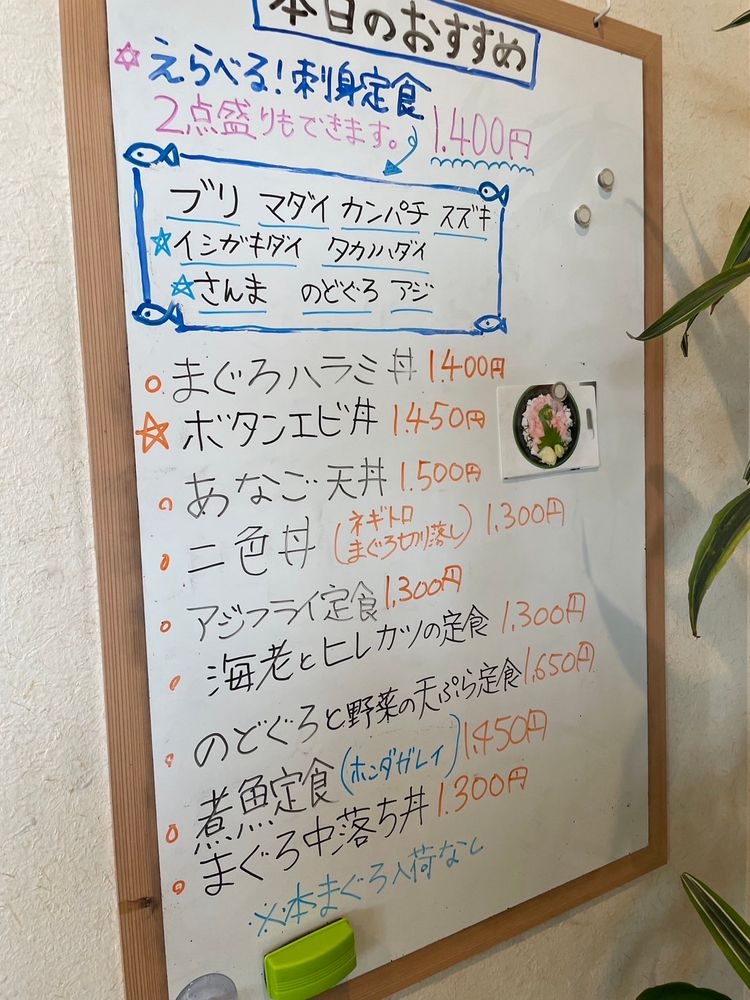 本日のおすすめ
えらべる!刺身定食
2点盛りもできます。 1.400円
ブリ マダイ カンパチ スズキ
☆イシガキダイ タカノハダイ
☆さんま のどぐろ アジ
まぐろハラミ丼 1.400円
☆ボタンエビ丼 1.450円
あなご天丼 1.500円
二色丼 (ネギトロ まぐろ切り落し) 1.300円
アジフライ定食 1.300円
海老とヒレカツの定食 1.300円
のどぐろと野菜の天ぷら定食 1.650円
煮魚定食 (ホンダガレイ) 1.450円
まぐろ中落ち丼 1.300円
※本まぐろ入荷なし